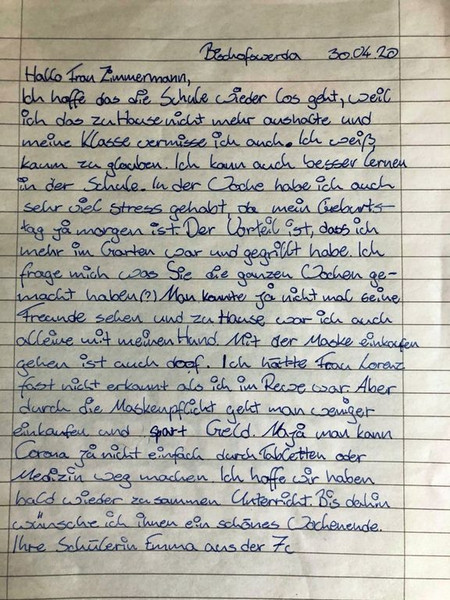 Bischofswerda 30.04.20
Hallo Frau Zimmermann,
Ich hoffe das die Schule wieder los geht, weil
ich das zu Hause nicht mehr aushalte und
meine Klasse vermisse ich auch. Ich weiß
kaum zu glauben. Ich kann auch besser lernen
in der Schule. In der Woche habe ich auch
sehr viel stress gehabt, da mein Geburts-
tag ja morgen ist. Der Vorteil ist, dass ich
mehr im Garten war und gegrillt habe. Ich
frage mich was Sie die ganzen Wochen ge-
macht haben(?) Man konnte ja nicht mal seine
Freunde sehen und zu Hause war ich auch
alleine mit meinen Hund. Mit der Maske einkaufen
gehen ist auch doof. Ich hätte Frau Lorenz
fast nicht erkannt als ich im Rewe war. Aber
durch die Maskenpflicht geht man weniger
einkaufen und spart Geld. Naja man kann
Corona ja nicht einfach durch Tabletten oder
Medizin weg machen. Ich hoffe wir haben
bald wieder zusammen Unterricht. Bis dahin
wünsche ich ihnen ein schönes Wochenende.
Ihre Schülerin Emma aus der 7c